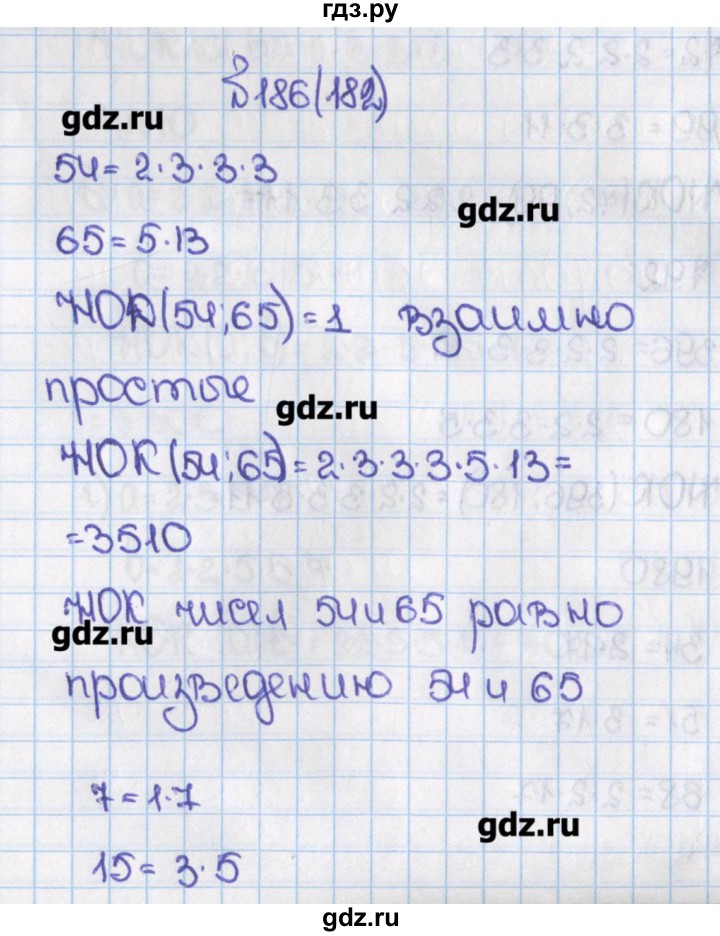 гдз.ру
№186(182)
gdz.ru
54=2·3·3·3
gdz.ru
65=5·13
НОД(54;65)=1 взаимно
простые
gdz.ru
НОК(54;65)=2·3·3·3·5·13=
=3510
НОК чисел 54 и 65 равно
gdz.ru
произведению 54 и 65
7=1·7
gdz.ru
15=3·5
gdz.ru